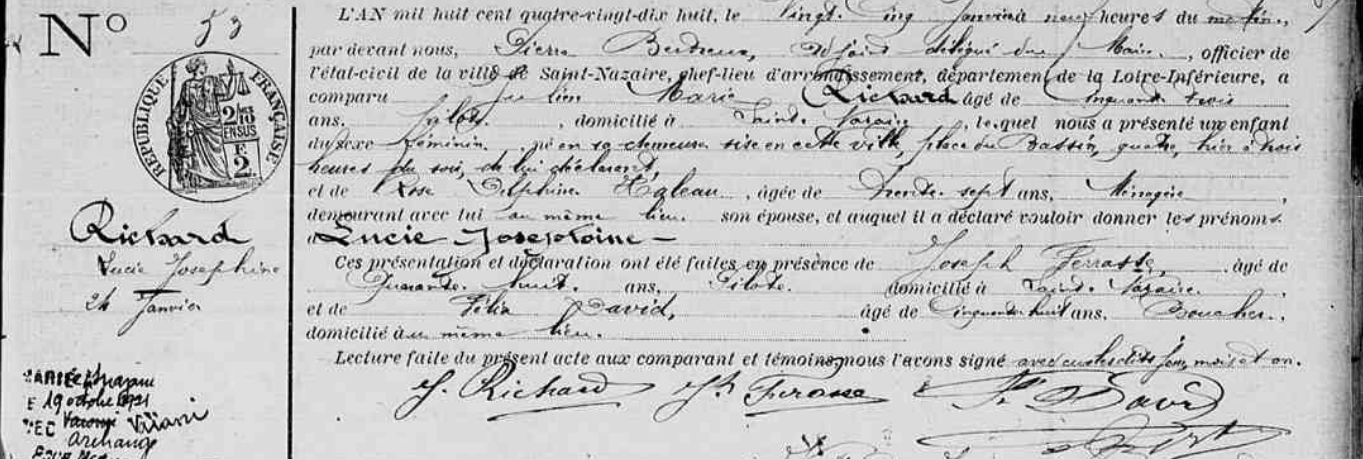 N° 53
RÉPUBLIQUE FRANÇAISE
2/10
EN SUS
F.
2.
Richard
Lucie Josephine
24 Janvier
MARIÉE
LE 19 octobre
AVEC
Archange
L'AN mil huit cent quatre-vingt-dix huit, le Vingt-Cinq Janvier à neuf heures du matin,
par devant nous, Pierre, Adjoint délégué du Maire, officier de
l'état-civil de la ville de Saint-Nazaire, chef-lieu d'arrondissement, département de la Loire-Inférieure, a
comparu Julien Marie Richard âgé de Cinquante trois
ans, Pilote, domicilié à Saint-Nazaire, lequel nous a présenté un enfant
du sexe féminin, né en sa demeure sise en cette ville, place du Bassin, quatre, hier à trois
heures du soir, de lui déclarant,
et de Rose Delphine, âgée de Trente-sept ans, Ménagère,
demeurant avec lui au même lieu son épouse, et auquel il a déclaré vouloir donner les prénoms
Lucie Josephine
Ces présentation et déclaration ont été faites en présence de Joseph Ferrasse, âgé de
Quarante-huit ans, Pilote domicilié à Saint-Nazaire
et de Félix David, âgé de Cinquante huit ans, Boucher,
domicilié au même lieu.
Lecture faite du présent acte aux comparant et témoins, nous l'avons signé avec eux lesdits jour, mois et an.
J. Richard
Jh Ferrasse
F. David